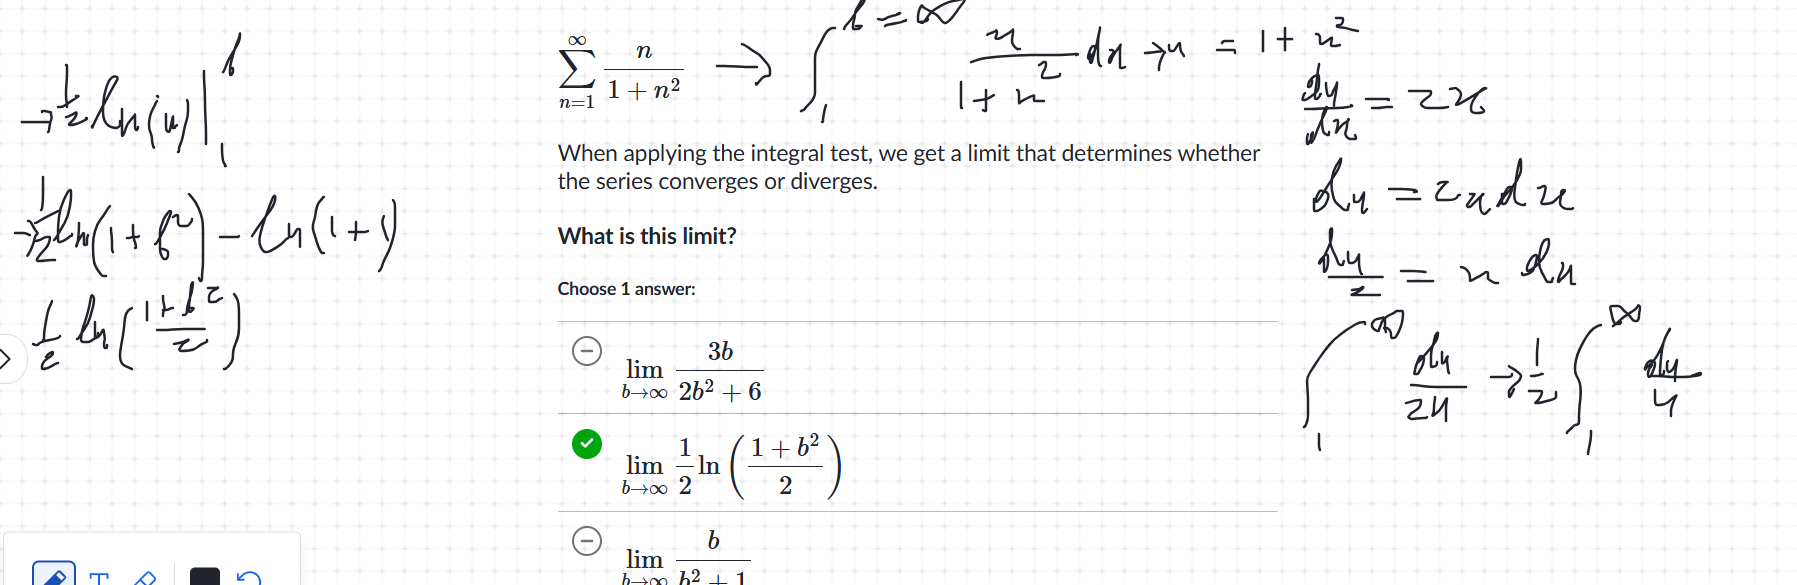 ∞
∑ n/(1 + n²) → ∫₁^(b=∞) x/(1+x²) dx → u = 1 + x²
n=1
du/dx = 2x
du = 2x dx
du/2 = x dx
∫₁^∞ du/2u → 1/2 ∫₁^∞ du/u
→ 1/2 ln(u) |₁^b
→ 1/2 ln(1 + b²) - ln(1+1)
1/2 ln((1+b²)/2)
When applying the integral test, we get a limit that determines whether
the series converges or diverges.
What is this limit?
Choose 1 answer:
lim b→∞ 3b/(2b² + 6)
lim b→∞ 1/2 ln((1 + b²)/2)
lim b→∞ b/(b² + 1)
T